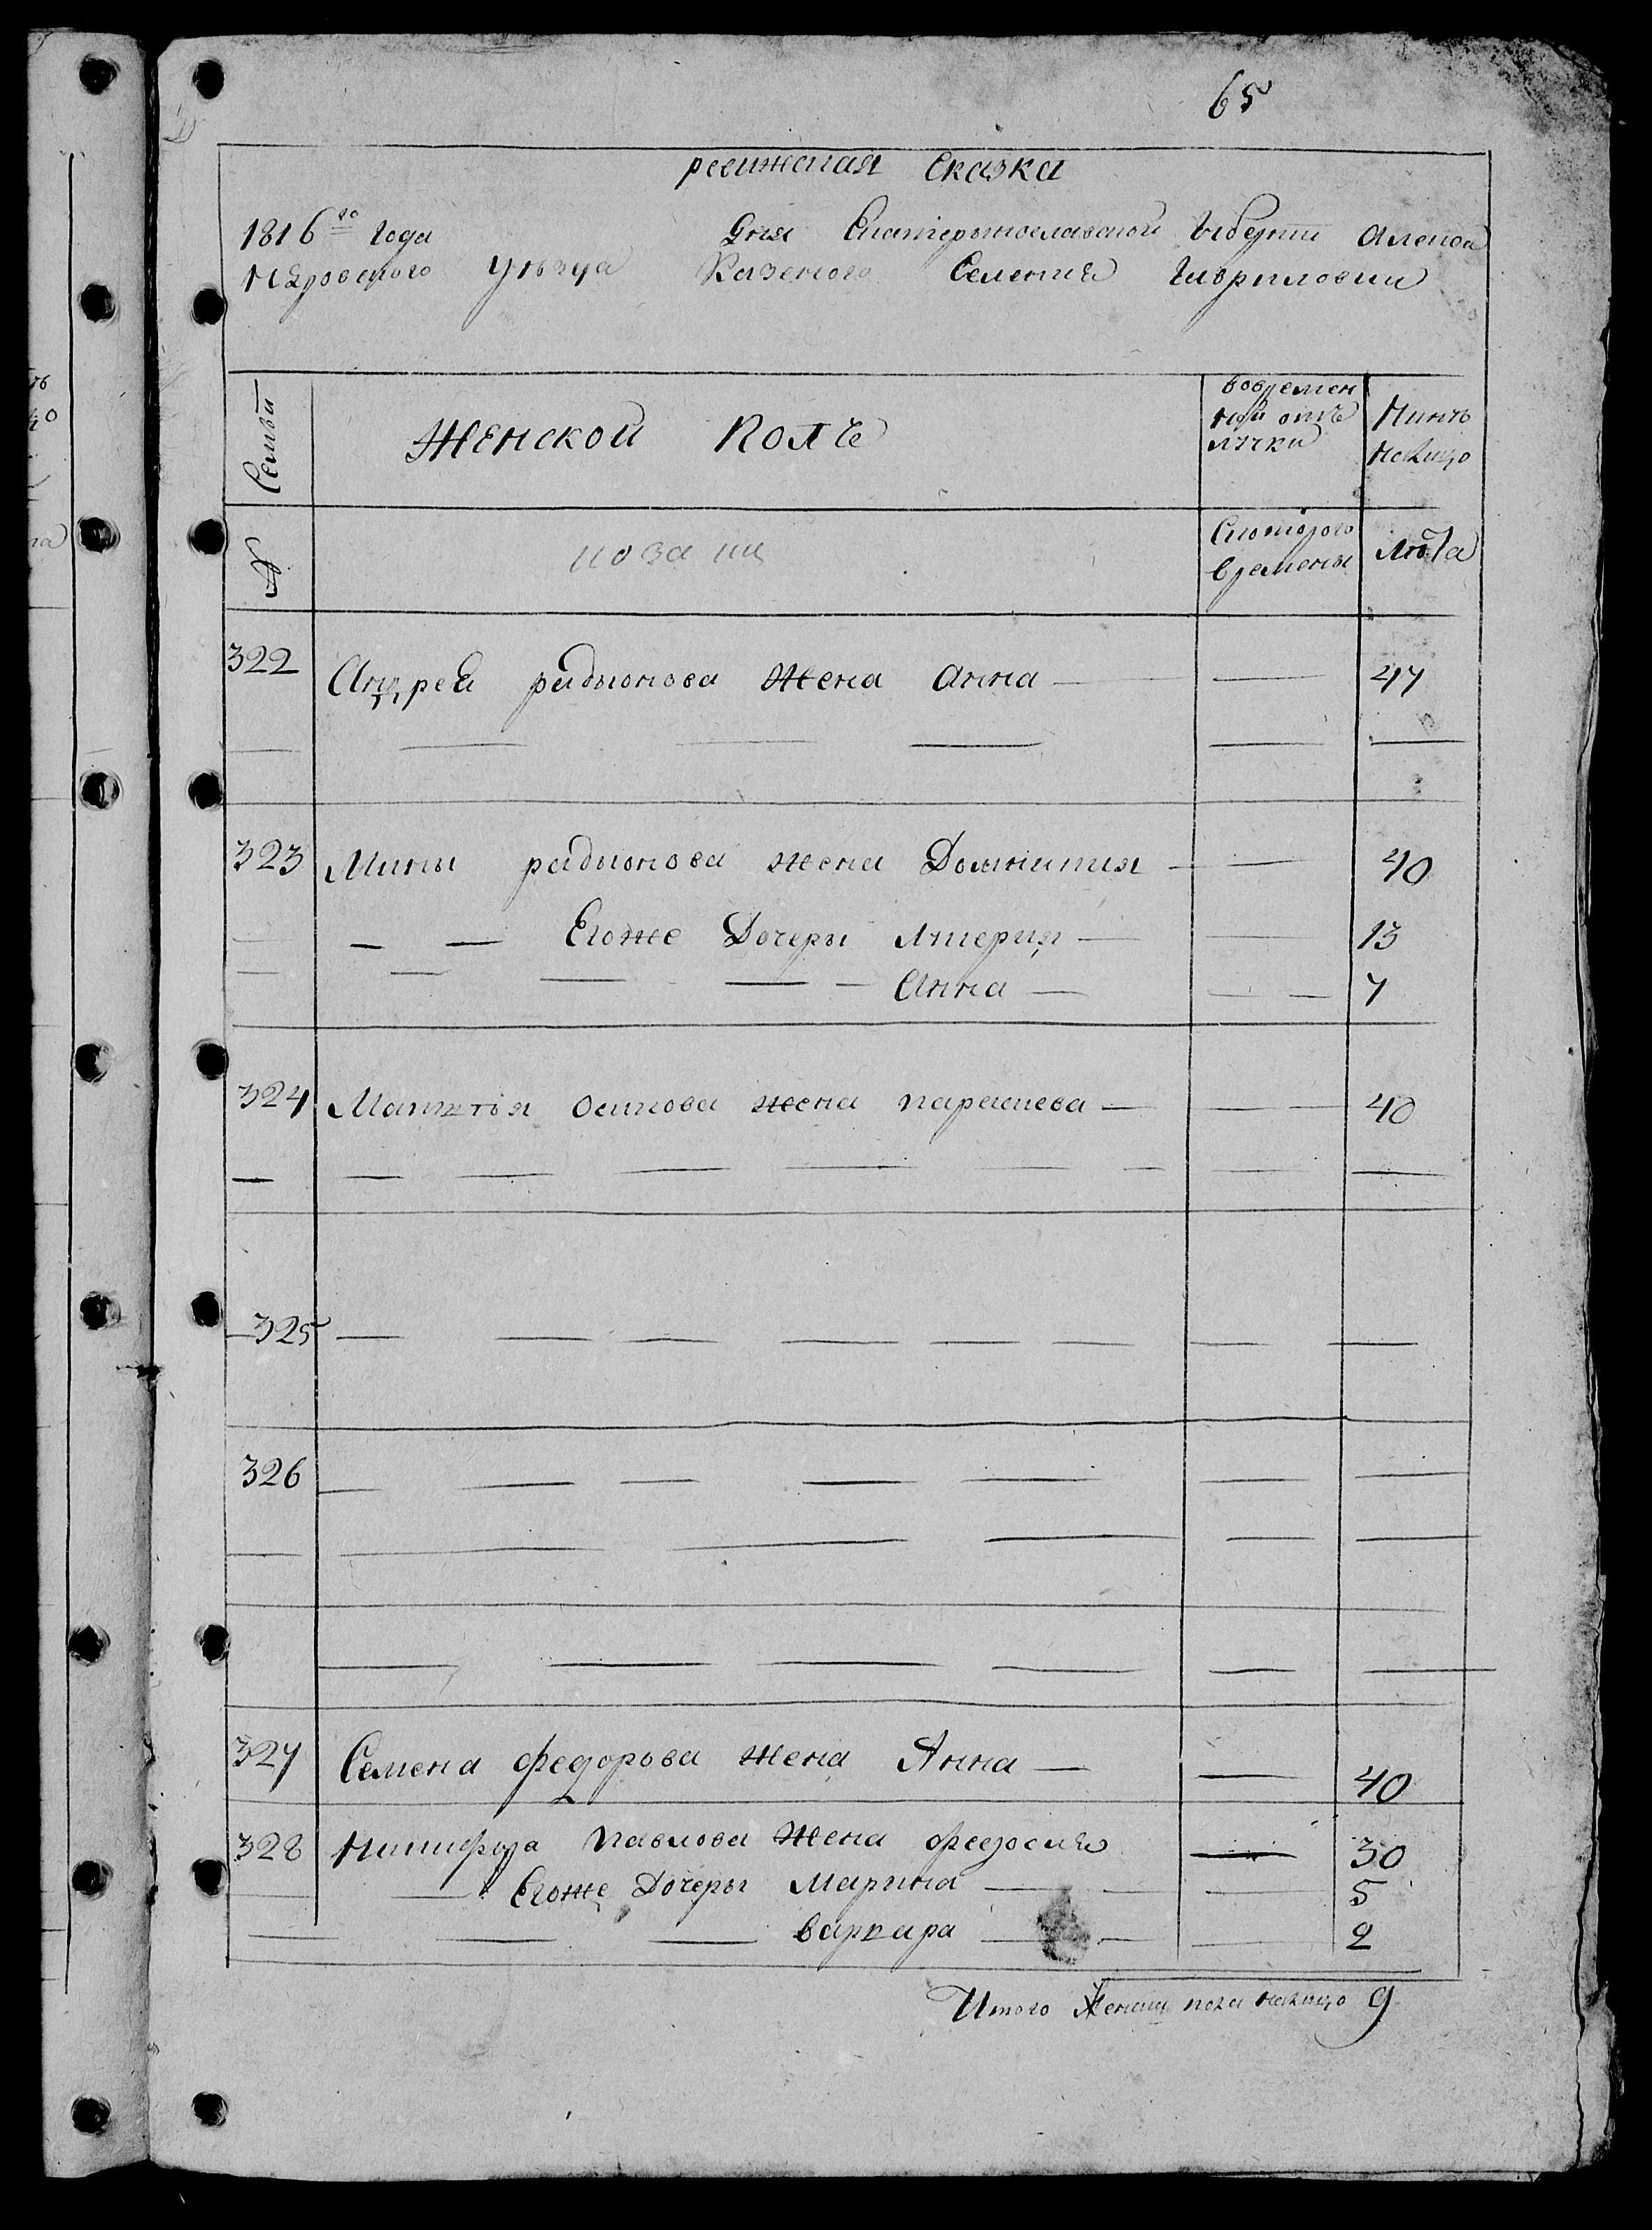 65
ревижская сказка
1816го Года Дня Екатеринославской Губерни Алекса
ндровского уезда Казеного Селения Гавриловки
Семьи
Женской Полъ
вовремен
ной отъ
лучки
Нинъ
налицо
№
Скоторого
времены
Лѣта
322 Андрей радионова жена Анна — — 47
323 Мины радионова жена Домникия — — 40
— — Егоже Дочеры Лікерия — — 13
— — — — — Анна — — — 7
324 Матвѣя осипова жена параскева — — — 40
325
326
327 Семена федорова жена Анна — — 40
328 Никифора Павлова жена федосия — 30
— Егоже Дочеры Марина — — — 5
— — — варвара — — — 2
Итого Женска пола налицо 9